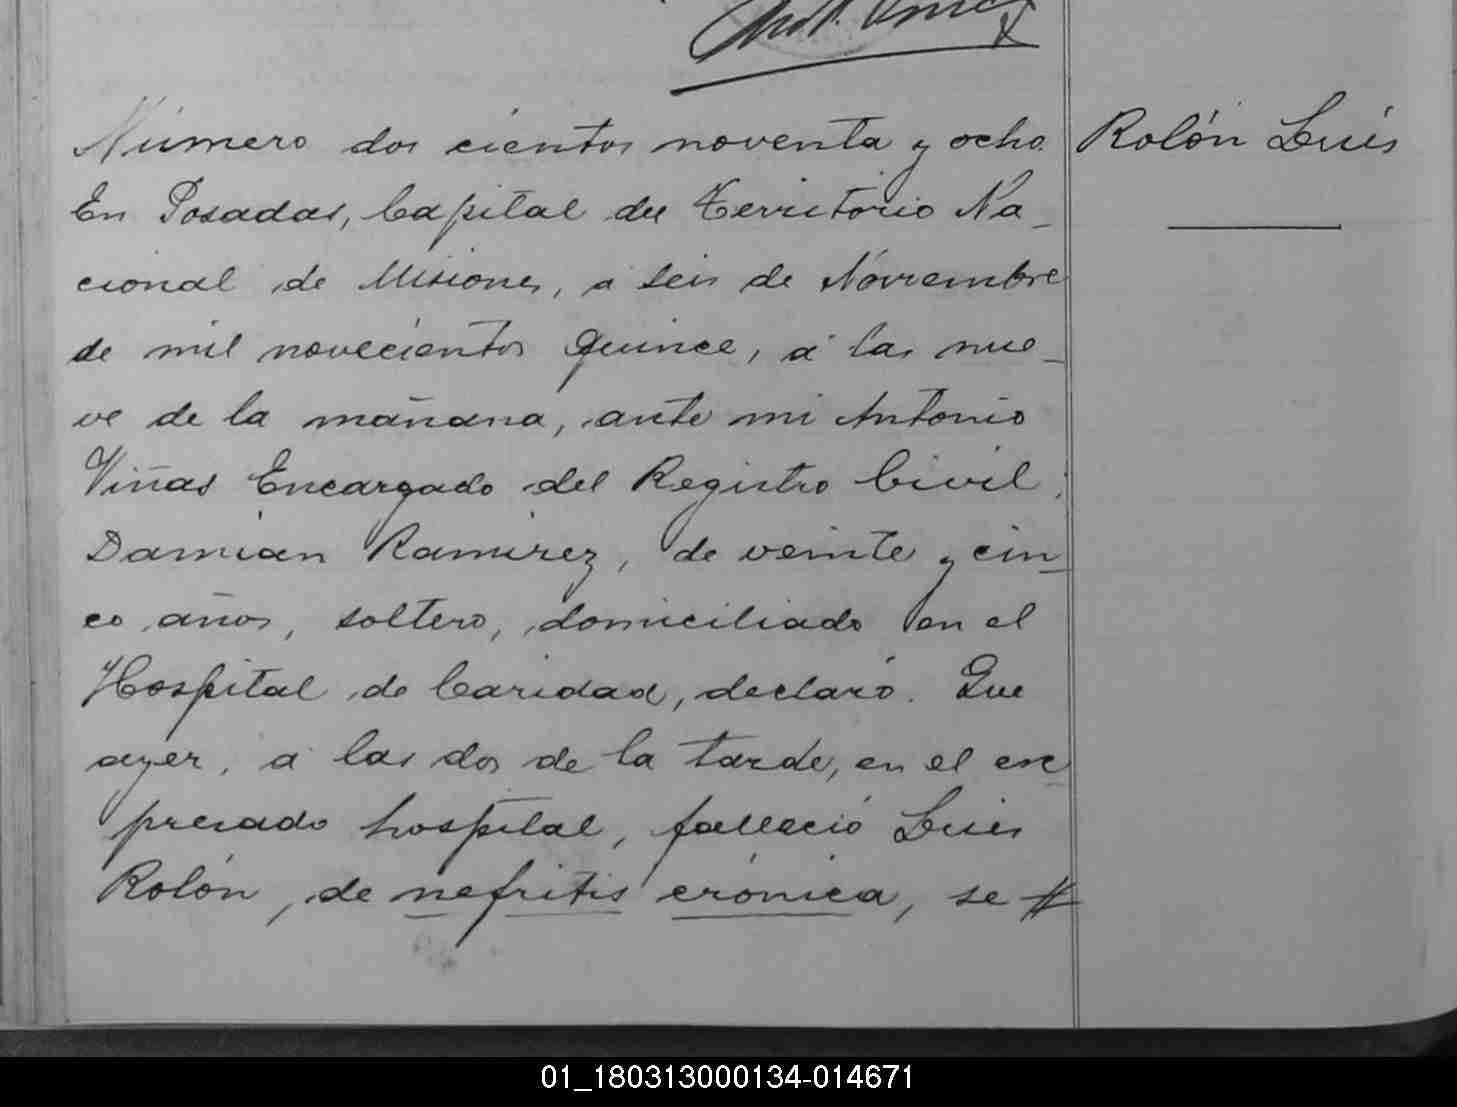 Número dos cientos noventa y ocho.
Rolón Luis
En Posadas, Capital del Territorio Na-
cional de Misiones, a seis de Noviembre
de mil novecientos quince, á las nue-
ve de la mañana, ante mi Antonio
Viñas Encargado del Registro Civil;
Damián Ramirez, de veinte y cin-
co años, soltero, domiciliado en el
Hospital de Caridad, declaró. Que
ayer, a las dos de la tarde, en el ex
presado hospital, falleció Luis
Rolón, de nefritis crónica, se #
01_180313000134-014671